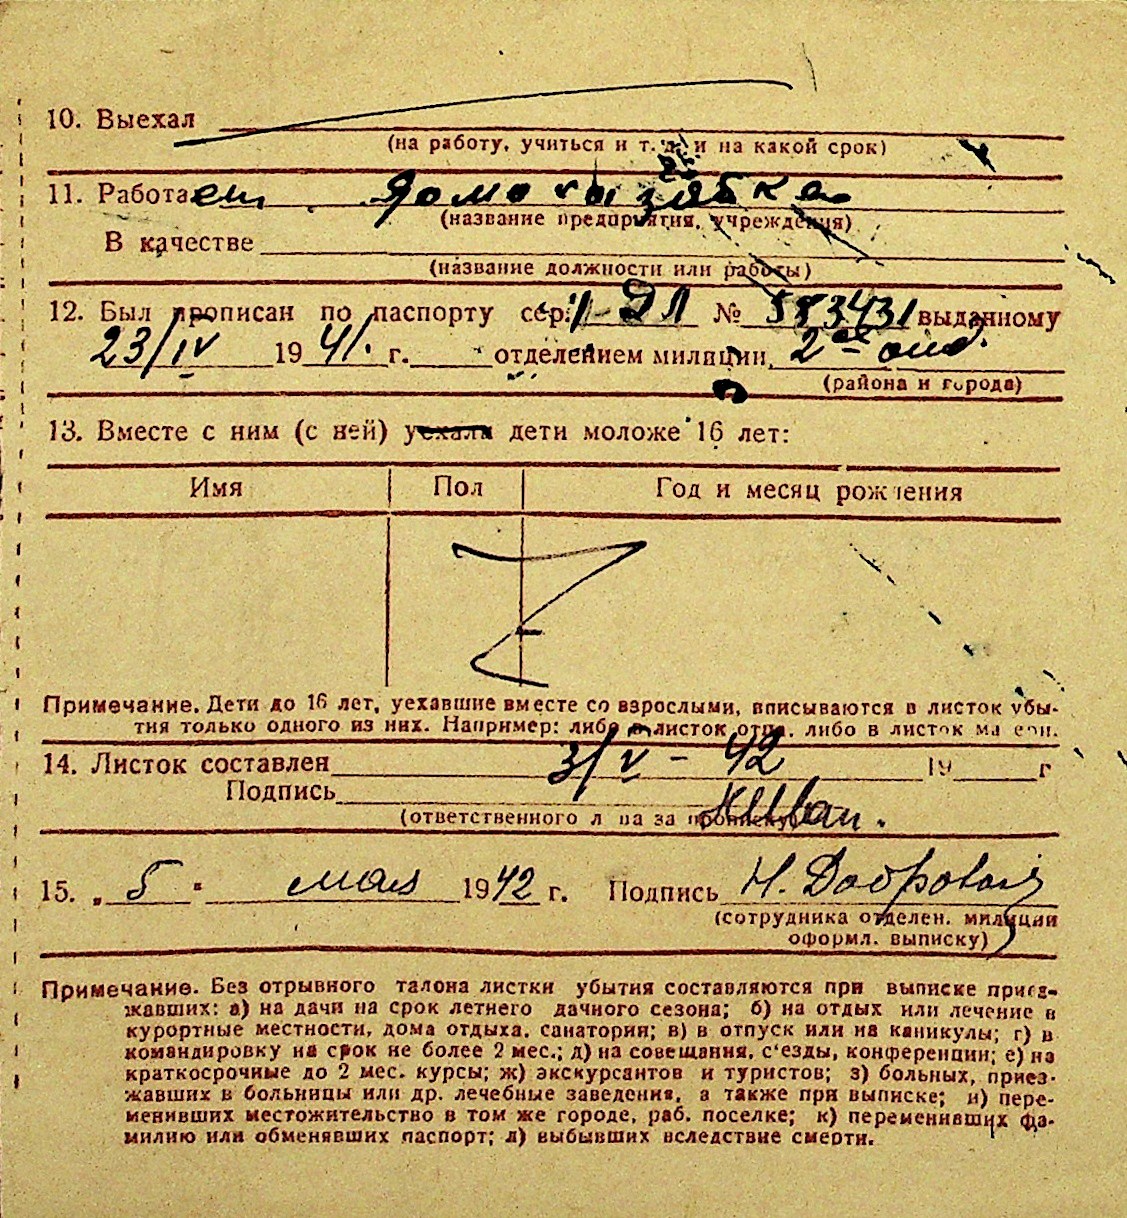 10. Выехал
(на работу, учиться и т. д. и на какой срок)
11. Работает домохозяйка
(название предприятия, учреждения)
В качестве
(название должности или работы)
12. Был прописан по паспорту сер. I-ДЛ № 583431 выданному
23/IV 1941. г. отделением милиции, 2ое отд.
(района и города)
13. Вместе с ним (с ней) уехали дети моложе 16 лет:
Имя Пол Год и месяц рождения
Примечание. Дети до 16 лет, уехавшие вместе со взрослыми, вписываются в листок убы-
тия только одного из них. Например: либо в листок отца, либо в листок матери.
14. Листок составлен 3/V - 42 19 г
Подпись
(ответственного лица за прописку)
15. „ 5 " мая 1942 г. Подпись Н.
(сотрудника отделен. милиции
оформл. выписку)
Примечание. Без отрывного талона листки убытия составляются при выписке приез-
жавших: а) на дачи на срок летнего дачного сезона; б) на отдых или лечение в
курортные местности, дома отдыха, санатории; в) в отпуск или на каникулы; г) в
командировку на срок не более 2 мес.; д) на совещания, с'езды, конференции; е) на
краткосрочные до 2 мес. курсы; ж) экскурсантов и туристов; з) больных, приез-
жавших в больницы или др. лечебные заведения, а также при выписке; и) пере-
менивших местожительство в том же городе, раб. поселке; к) переменивших фа-
милию или обменявших паспорт; л) выбывших вследствие смерти.